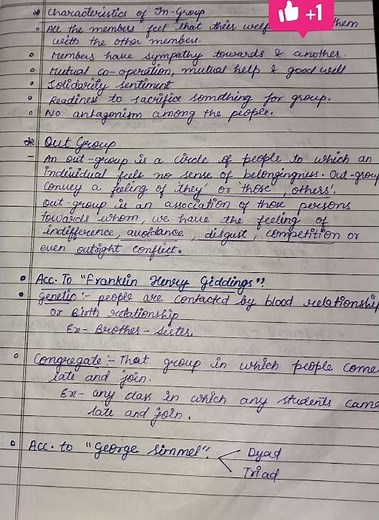 * Characteristics of In-Group
+1
• All the members feel that their welf them
with the other member.
• Members have sympathy towards & another.
• Mutual co-operation, mutual help & good will
• Solidarity sentiment
• Readiness to sacrifice something for group.
• No antagonism among the people.
* Out Group
- An out-group is a circle of people to which an
individual feels no sense of belongingness. Out-group
convey a feeling of 'they' or those, others'.
Out-group is an association of those persons
towards whom, we have the feeling of
indifference, avoidance, disgust, competition or
even outright conflict.
• Acc. To "Franklin Henry Giddings":
• genetic :- people are contacted by blood relationship
or Birth relationship
Ex- Brother - Sister
• Congregate :- That group in which people come
late and join.
Ex- any class in which any students came
late and join.
• Acc. to "George Simmel". Dyad
Triad